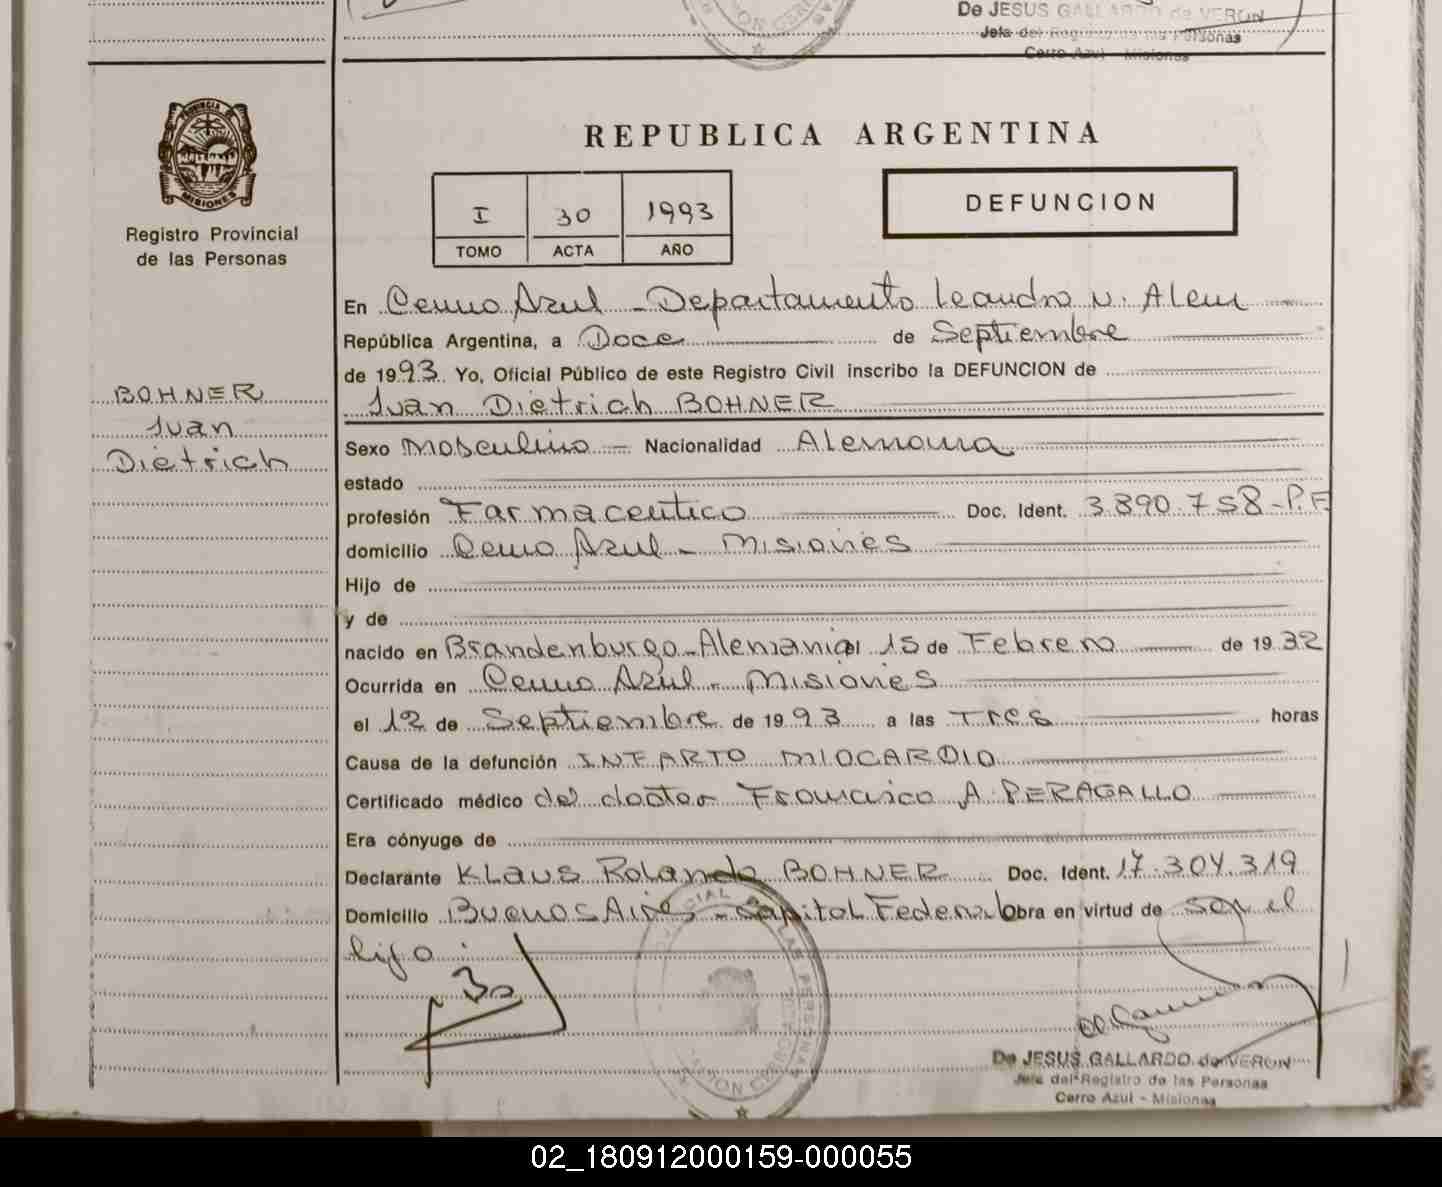 De JESUS GALLARDO de VERON
Jefa del Registro de las Personas
Cerro Azul - Misiones
PROVINCIA DE
MISIONES
Registro Provincial
de las Personas
REPUBLICA ARGENTINA
I 30 1993
TOMO ACTA AÑO
DEFUNCION
En Cerro Azul - Departamento Leandro N. Alem
República Argentina, a Doce de Septiembre
de 1993 Yo, Oficial Público de este Registro Civil inscribo la DEFUNCION de
Juan Dietrich BOHNER
BOHNER
Juan
Dietrich
Sexo Masculino - Nacionalidad Alemana
estado
profesión Farmaceutico Doc. Ident. 3.890.758-P.F
domicilio Cerro Azul - Misiones
Hijo de
y de
nacido en Brandenburgo-Alemania el 15 de Febrero de 1932
Ocurrida en Cerro Azul - Misiones
el 12 de Septiembre de 1993 a las Tres horas
Causa de la defunción INFARTO MIOCARDIO
Certificado médico del doctor Francisco A. PERAGALLO
Era cónyuge de
Declarante Klaus Rolando BOHNER Doc. Ident. 17.304.319
Domicilio Buenos Aires - Capital Federal Obra en virtud de ser el
hijo.
De JESUS GALLARDO de VERON
Jefa del Registro de las Personas
Cerro Azul - Misiones
02_180912000159-000055